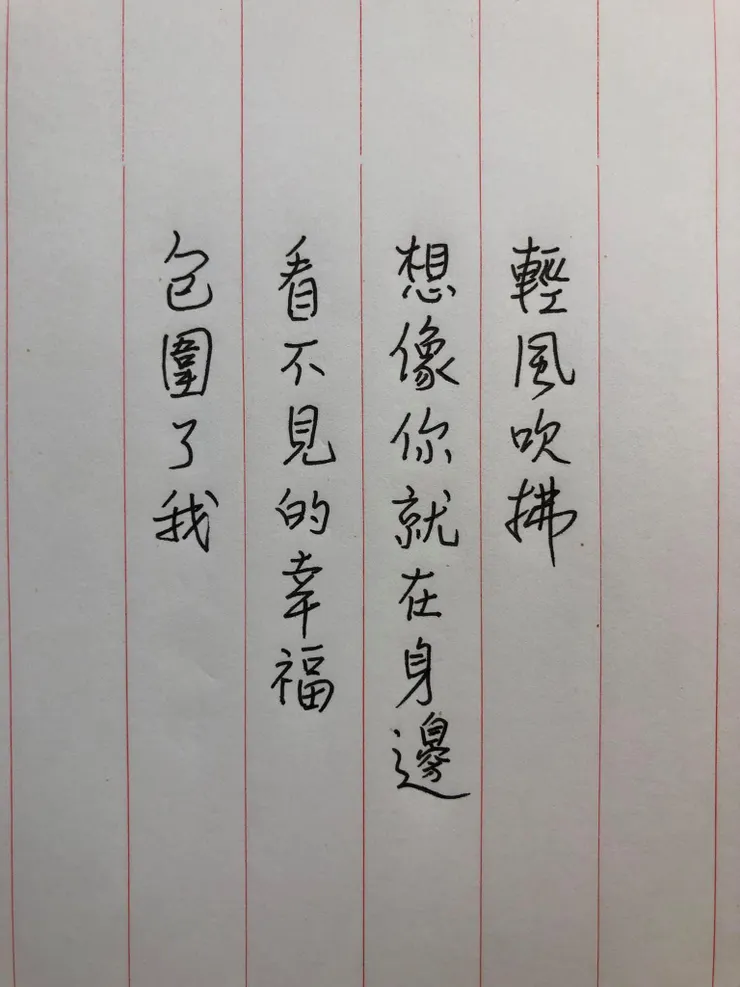 輕風吹拂
想像你就在身邊
看不見的幸福
包圍了我